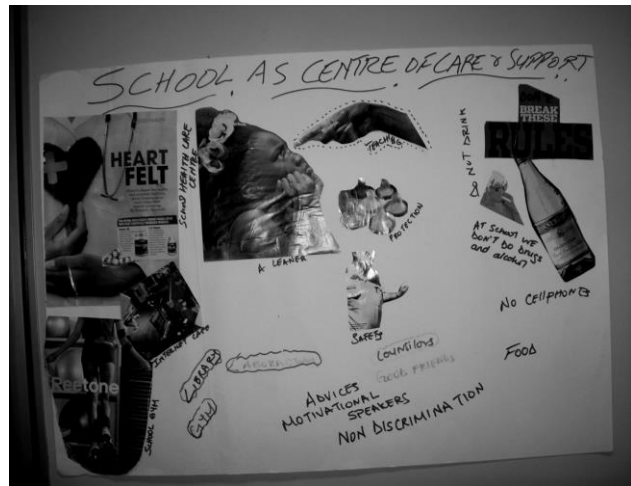 SCHOOL AS CENTRE OF CARE & SUPPORT
HEART
FELT
SCHOOL HEALTH CARE
CENTRE
TEACHING
A LEANER
PROTECTION
SAFETY
& NOT DRINK
BREAK
THESE
RULES
AT SCHOOL WE
DON'T DO DRUGS
and alcohol
NO CELLPHONES
INTERNET CAFE
Reetone
SCHOOL GYM
LIBRARY
GYM
COUNCILORS
GOOD FRIENDS
FOOD
ADVICES
MOTIVATIONAL
SPEAKERS
NON DISCRIMINATION